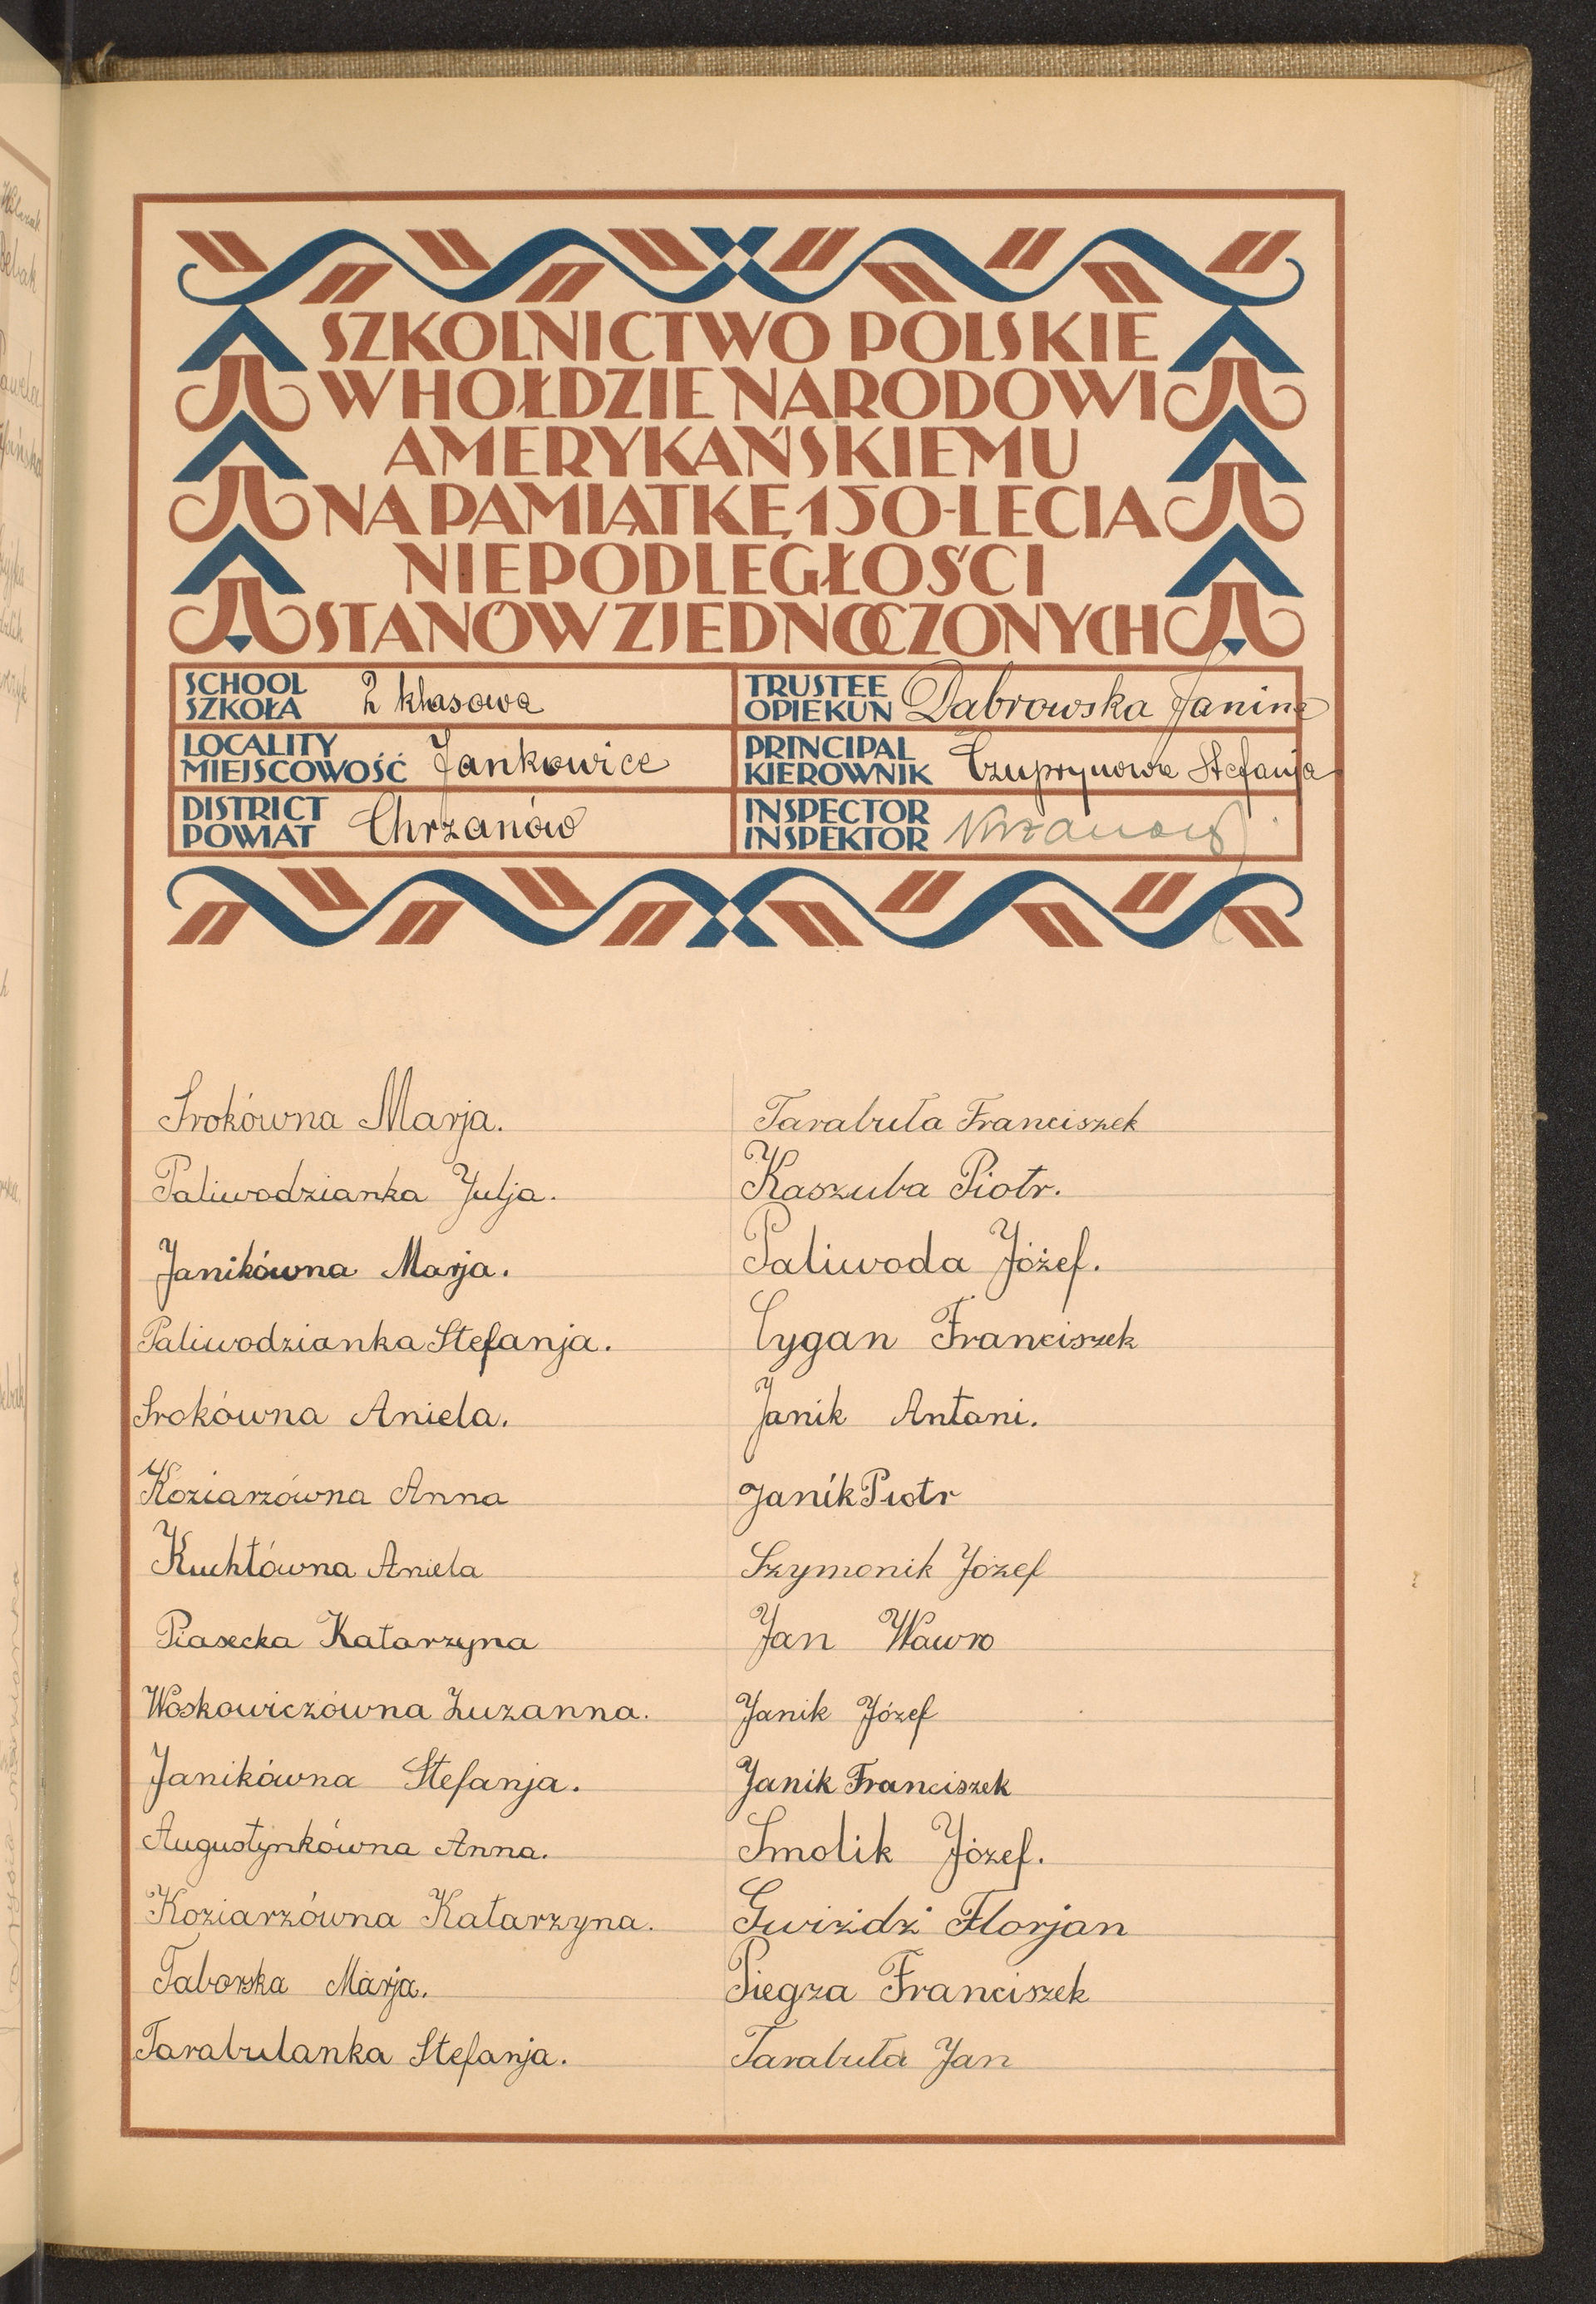 SZKOLNICTWO POLSKIE
W HOŁDZIE NARODOWI
AMERYKAŃSKIEMU
NA PAMIĄTKĘ 150-LECIA
NIEPODLEGŁOŚCI
STANÓW ZJEDNOCZONYCH
SCHOOL
SZKOŁA 2 klasowa
TRUSTEE
OPIEKUN Dąbrowska Janina
LOCALITY
MIEJSCOWOŚĆ Jankowice
PRINCIPAL
KIEROWNIK Czuprynowa Stefanja
DISTRICT
POWIAT Chrzanów
INSPECTOR
INSPEKTOR
Srokówna Marja.
Paliwodzianka Julja.
Janikówna Marja.
Paliwodzianka Stefanja.
Srokówna Aniela.
Koziarzówna Anna
Kuchtówna Aniela
Piasecka Katarzyna
Woskowiczówna Zuzanna.
Janikówna Stefanja.
Augustynkówna Anna.
Koziarzówna Katarzyna.
Taborska Marja.
Tarabulanka Stefanja.
Tarabuła Franciszek
Kaszuba Piotr.
Paliwoda Józef.
Cygan Franciszek
Janik Antoni.
Janik Piotr
Szymonik Józef
Jan Wawro
Janik Józef
Janik Franciszek
Smolik Józef.
Gwiżdż Florjan
Piegza Franciszek
Tarabuła Jan